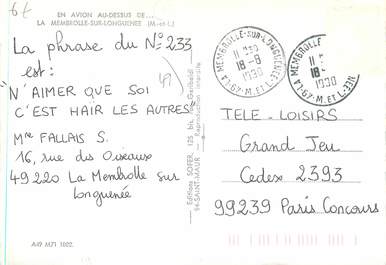 6f
EN AVION AU-DESSUS DE...
LA MEMBROLLE-SUR-LONGUENEE (M.-et-L.)
La phrase du N° 233
est:
"N'AIMER QUE SOI
C'EST HAIR LES AUTRES"
Mme FALLAIS S.
16, rue des Oiseaux
49220 La Membrolle sur
Longuenée
A49 MZ1 1022.
Editions SOFER, 125 bis, rue Garibaldi
94-SAINT-MAUR — Reproduction interdite
LA MEMBROLLE-SUR-LONGUENEE
18-8
1990
49-M.ET L.
LA MEMBROLLE
18
1990
49-M.ET L.
TELE-LOISIRS
Grand Jeu
Cedex 2393
99239 Paris Concours